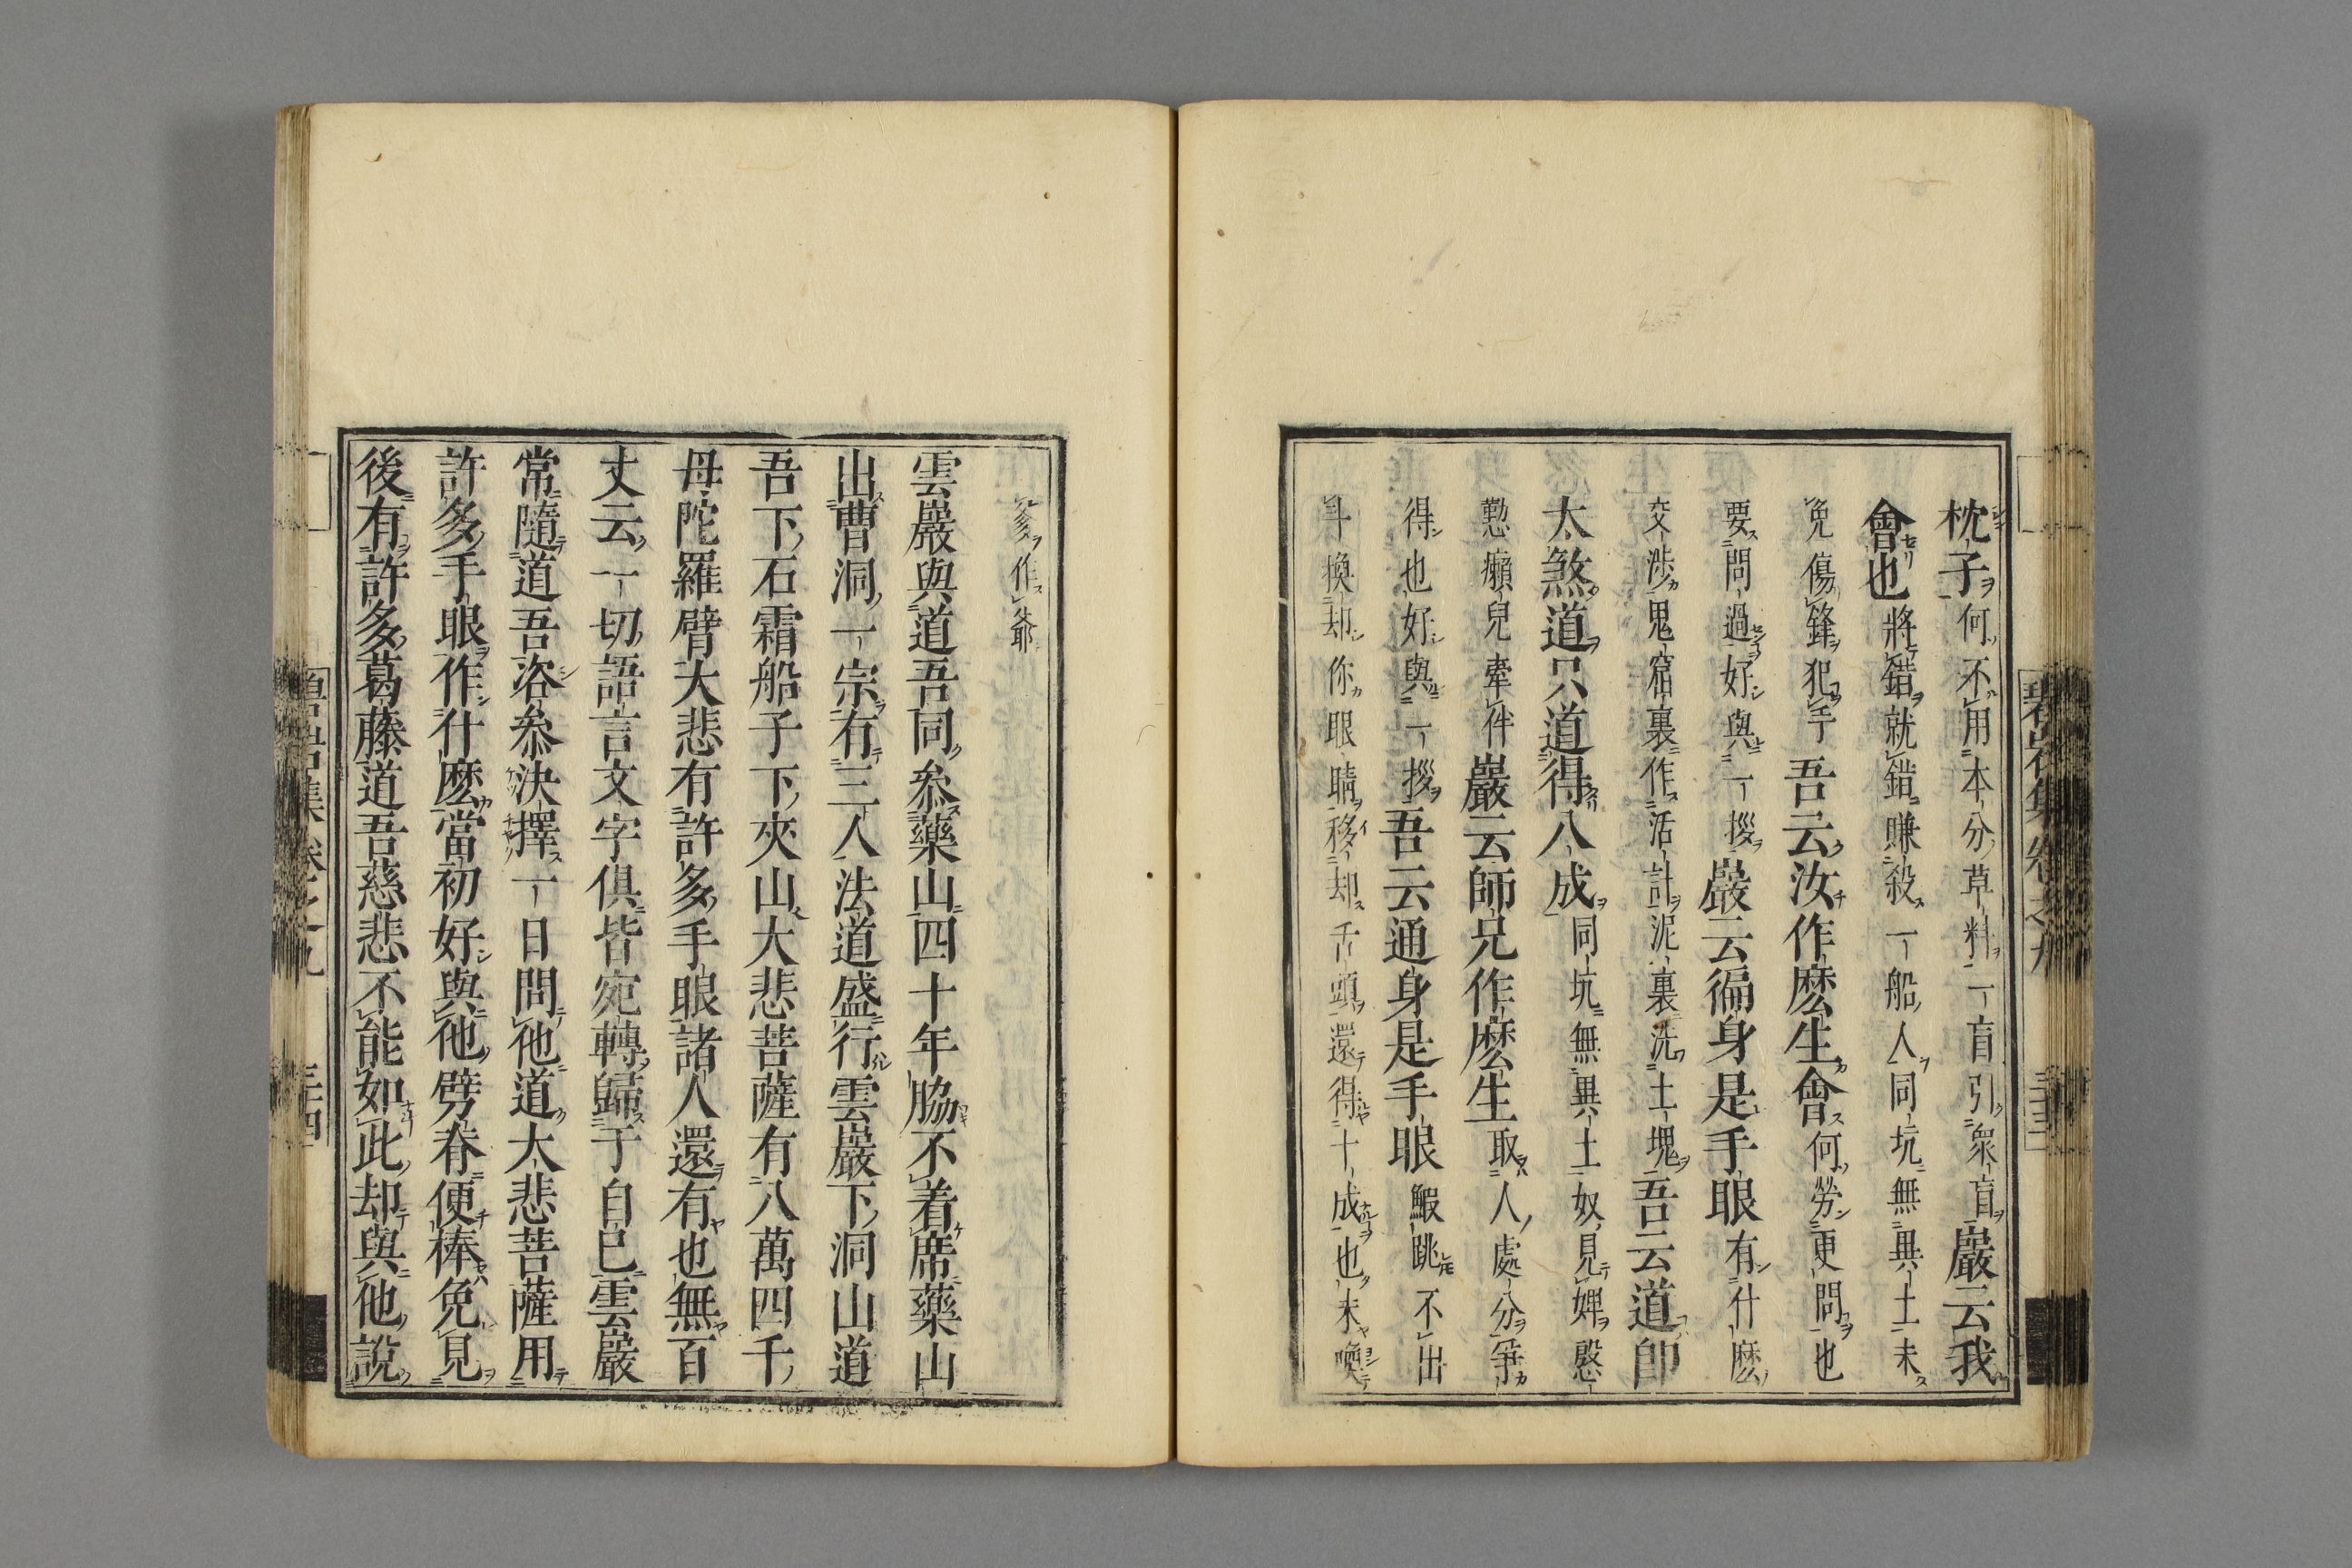 枕子何不用本分草料一盲引衆盲巖云我
會也將錯就錯賺殺一船人同坑無異土未
免傷鋒犯手吾云汝作麽生會何勞更問也
要問過好與一拶巖云徧身是手眼有什麽
交渉鬼窟裏作活計泥裏洗土塊吾云道即
太煞道只道得八成同坑無異土奴見婢慇
懃癩兒牽伴巖云師兄作麽生取人處分爭
得也好與一拶吾云通身是手眼鰕跳不出
斗換却你眼睛移却舌頭還得十成也未喚
碧岩集卷之九
三十三
爹作爺
雲巖與道吾同叅藥山四十年脇不着席藥山
出曹洞一宗有三人法道盛行雲巖下洞山道
吾下石霜船子下夾山大悲菩薩有八萬四千
母陀羅臂大悲有許多手眼諸人還有也無百
丈云一切語言文字俱皆宛轉歸于自己雲巖
常隨道吾咨叅決擇一日問他道大悲菩薩用
許多手眼作什麽當初好與他劈脊便棒免見
後有許多葛藤道吾慈悲不能如此却與他說
碧岩集 卷之九
三十四